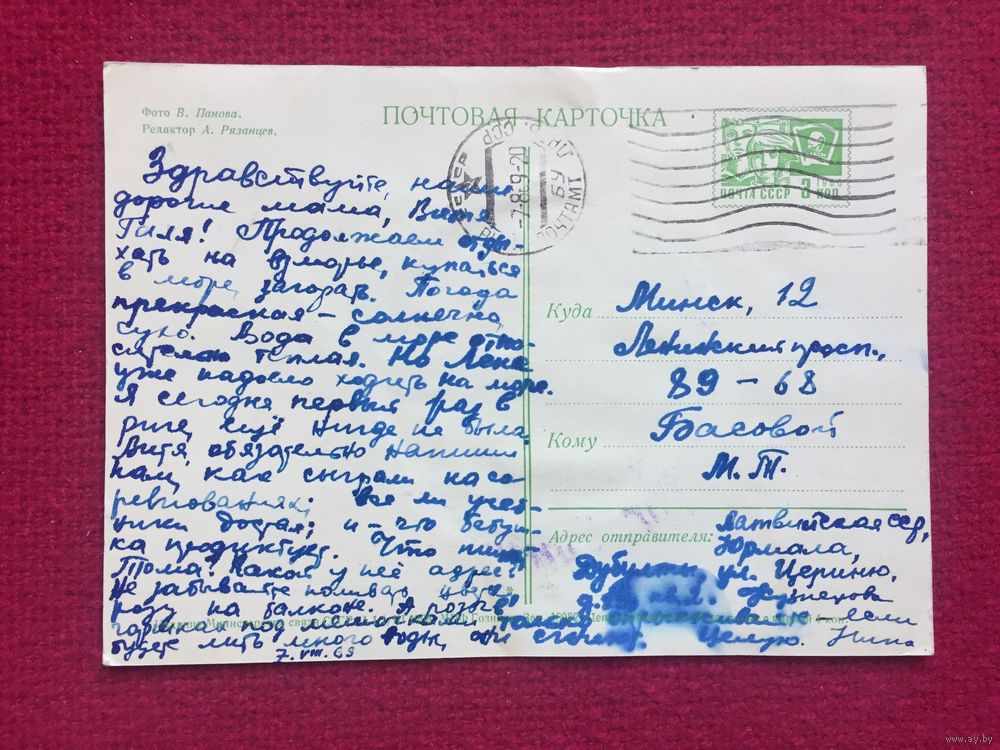 Фото В. Панова.
Редактор А. Рязанцев.
ПОЧТОВАЯ КАРТОЧКА
ПОЧТА СССР 3 КОП
-7.8.69-20
Здравствуйте, наши
дорогие мама, Витя,
Гиля! Продолжаем отды-
хать на взморье, купаться
в море, загорать. Погода
прекрасная – солнечно,
сухо. Вода в море отно-
сительно теплая. Но Лене
уже надоело ходить на море.
Я сегодня первый раз в
риге, ещё нигде не была.
Витя, обязательно напиши
нам, как сыграли на со-
ревнованиях; Все ли учеб-
ники достал; и – что бабуш-
ка продиктует. Что пишет
Тома? Какой у неё адрес?
Не забывайте поливать
розу на балконе. А розы в
горшках
будете лить много воды, они
7.VIII.69
Куда Минск, 12
Ленинский просп.,
89 – 68
Кому Басовой
М.Т.
Адрес отправителя:
Латвийская ССР,
Юрмала,
Дубулты, ул. Цериню,
д.
Целую. Нина
www.ay.by